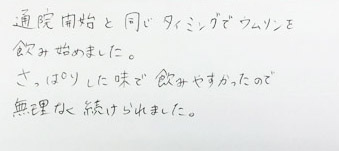 通院開始と同じタイミングでウムリンを
飲み始めました。
さっぱりした味で飲みやすかったので
無理なく続けられました。